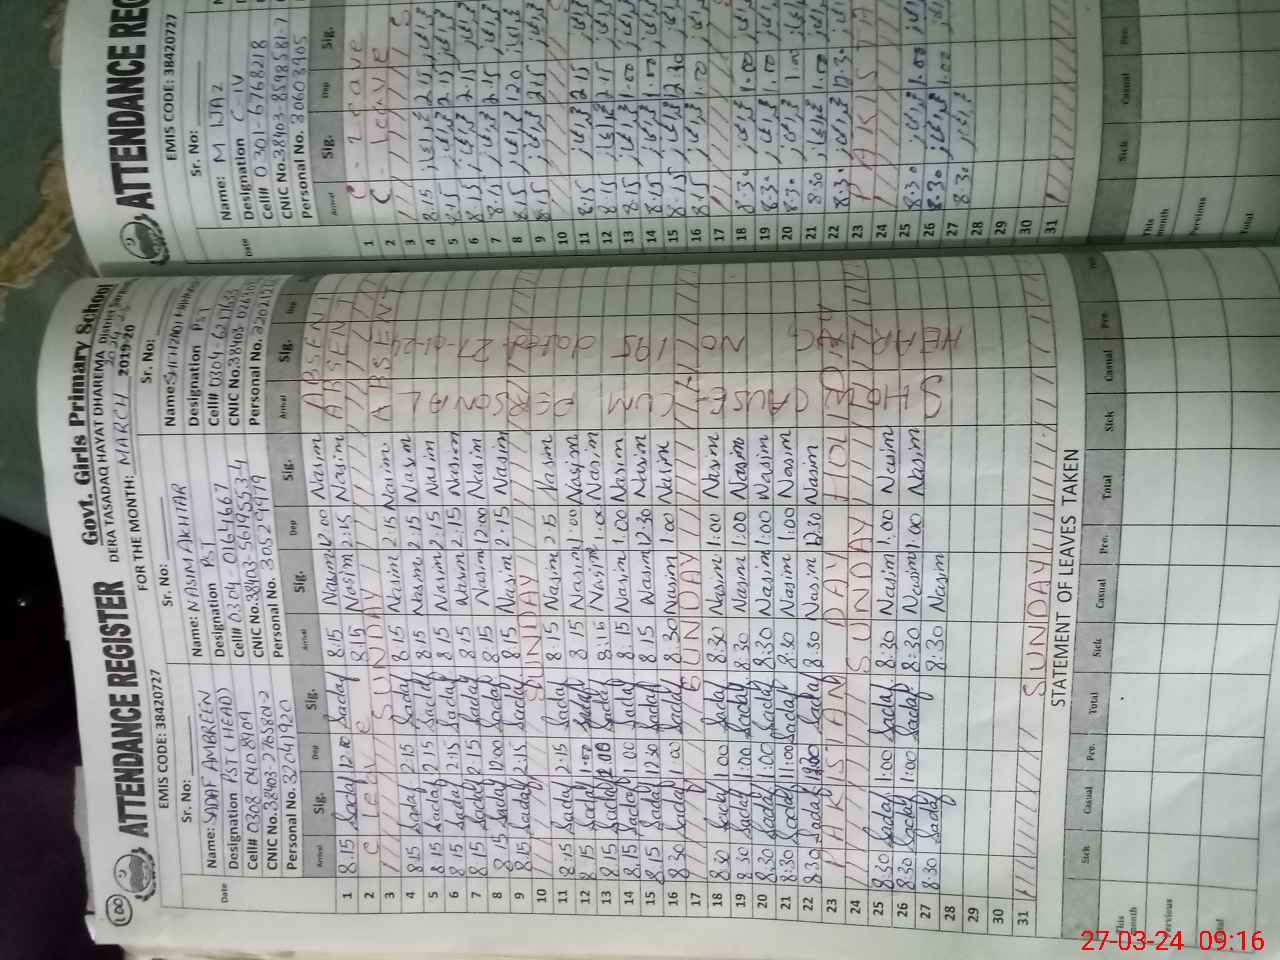 100
ATTENDANCE REGISTER
Govt. Girls Primary School
DERA TASADAQ HAYAT DHAREMA
EMIS CODE: 38420727
FOR THE MONTH: MARCH 2019-20
Sr. No:
Name: SADAF AMBREEN
Designation PST (HEAD)
Cell# 0308 040 8109
Sr. No:
Name: NASIM AKHTAR
Designation PST
Cell# 0304 0164667
CNIC No. 38403-5619553-4
Sr. No:
Designation PST
Date Arrival Sig. Dep Sig. Arrival Sig. Dep Sig. Arrival Sig. Dep
1 8:15 Sadaf Sadaf 8:15 Nasim 12:00 Nasim ABSENT
2 C leave 8:15 Nasim 2:15 Nasim ABSENT
3 SUNDAY ABSENT
4 8:15 Sadaf 2:15 Sadaf 8:15 Nasim 2:15 Nasim
5 8:15 Sadaf 2:15 Sadaf 8:15 Nasim 2:15 Nasim
6 8:15 Sadaf 2:15 Sadaf 8:15 Nasim 2:15 Nasim
7 8:15 Sadaf 2:15 Sadaf 8:15 Nasim 12:00 Nasim
8 8:15 Sadaf 12:00 Sadaf 8:15 Nasim 2:15 Nasim
9 8:15 Sadaf 2:15 Sadaf
10 SUNDAY
11 8:15 Sadaf 2:15 Sadaf 8:15 Nasim 2:15 Nasim
12 8:15 Sadaf 1:00 Sadaf 8:15 Nasim 1:00 Nasim
13 8:15 Sadaf Sadaf 8:15 Nasim 1:00 Nasim
14 8:15 Sadaf 1:00 Sadaf 8:15 Nasim 1:00 Nasim
15 8:15 Sadaf 12:30 Sadaf 8:15 Nasim 12:30 Nasim
16 8:30 Sadaf 1:00 Sadaf 8:30 Nasim 1:00 Nasim
17 SUNDAY
18 8:30 Sadaf 1:00 Sadaf 8:30 Nasim 1:00 Nasim
19 8:30 Sadaf 1:00 Sadaf 8:30 Nasim 1:00 Nasim
20 8:30 Sadaf 1:00 Sadaf 8:30 Nasim 1:00 Nasim
21 8:30 Sadaf 1:00 Sadaf 8:30 Nasim 1:00 Nasim
22 8:30 Sadaf Sadaf 8:30 Nasim 12:30 Nasim
23 PAKISTAN DAY HOLIDAY
24 SUNDAY
25 8:30 Sadaf 1:00 Sadaf 8:30 Nasim 1:00 Nasim
26 8:30 Sadaf 1:00 Sadaf 8:30 Nasim 1:00 Nasim
27 8:30 Sadaf 8:30 Nasim
28
29
30
31 SUNDAY
SHOW CAUSE CUM PERSONAL
HEARING NO 195 dated
STATEMENT OF LEAVES TAKEN
Sick Casual Per. Total Sick Casual Per. Total Sick Casual Per.
This month
Pervious
Total
ATTENDANCE REG
EMIS CODE: 38420727
Sr. No:
Name: M IJAZ
Designation C-IV
Cell# 0301-6768218
CNIC No. 38403-8598581-7
Personal No. 30603905
Date Arrival Sig. Dep Sig.
1 C. leave
2 C. leave
3
4 8:15 2:15
5 8:15 2:15
6 8:15 2:15
7 8:15 2:15
8 8:15
9 8:15 2:15
10
11 8:15 2:15
12 8:15 2:15
13 8:15 1:00
14 8:15 1:00
15 8:15 12:30
16 8:15 1:00
17
18 8:30 1:00
19 8:30 1:00
20 8:30 1:00
21 8:30 1:00
22 8:30 12:30
23 PAKISTA
24
25 8:30 1:00
26 8:30 1:00
27 8:30
28
29
30
31
Sick Casual Per.
This month
Pervious
Total
27-03-24 09:16